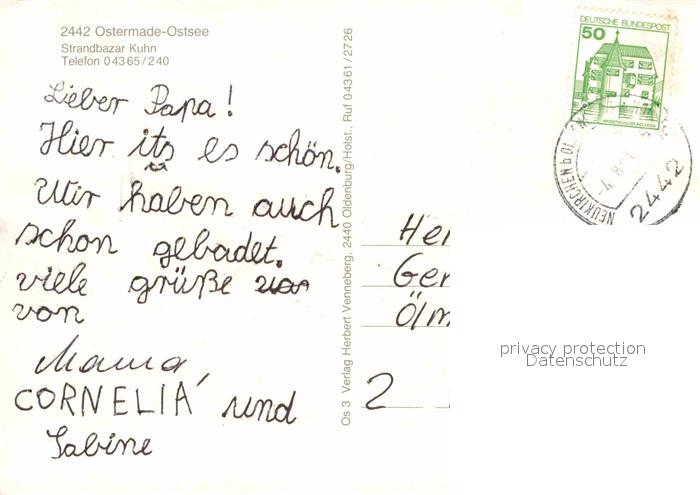 2442 Ostermade-Ostsee
Strandbazar Kuhn
Telefon 0 43 65 / 2 40
Lieber Papa!
Hier its es schön.
Wir haben auch
schon gebadet.
viele grüße von
von
Mama,
CORNELIA und
Sabine
Os 3 Verlag Herbert Venneberg, 2440 Oldenburg/Holst., Ruf 0 43 61 / 27 26
DEUTSCHE BUNDESPOST
50
2442
NEUKIRCHEN
Her
Ger
Ölm
2
privacy protection
Datenschutz